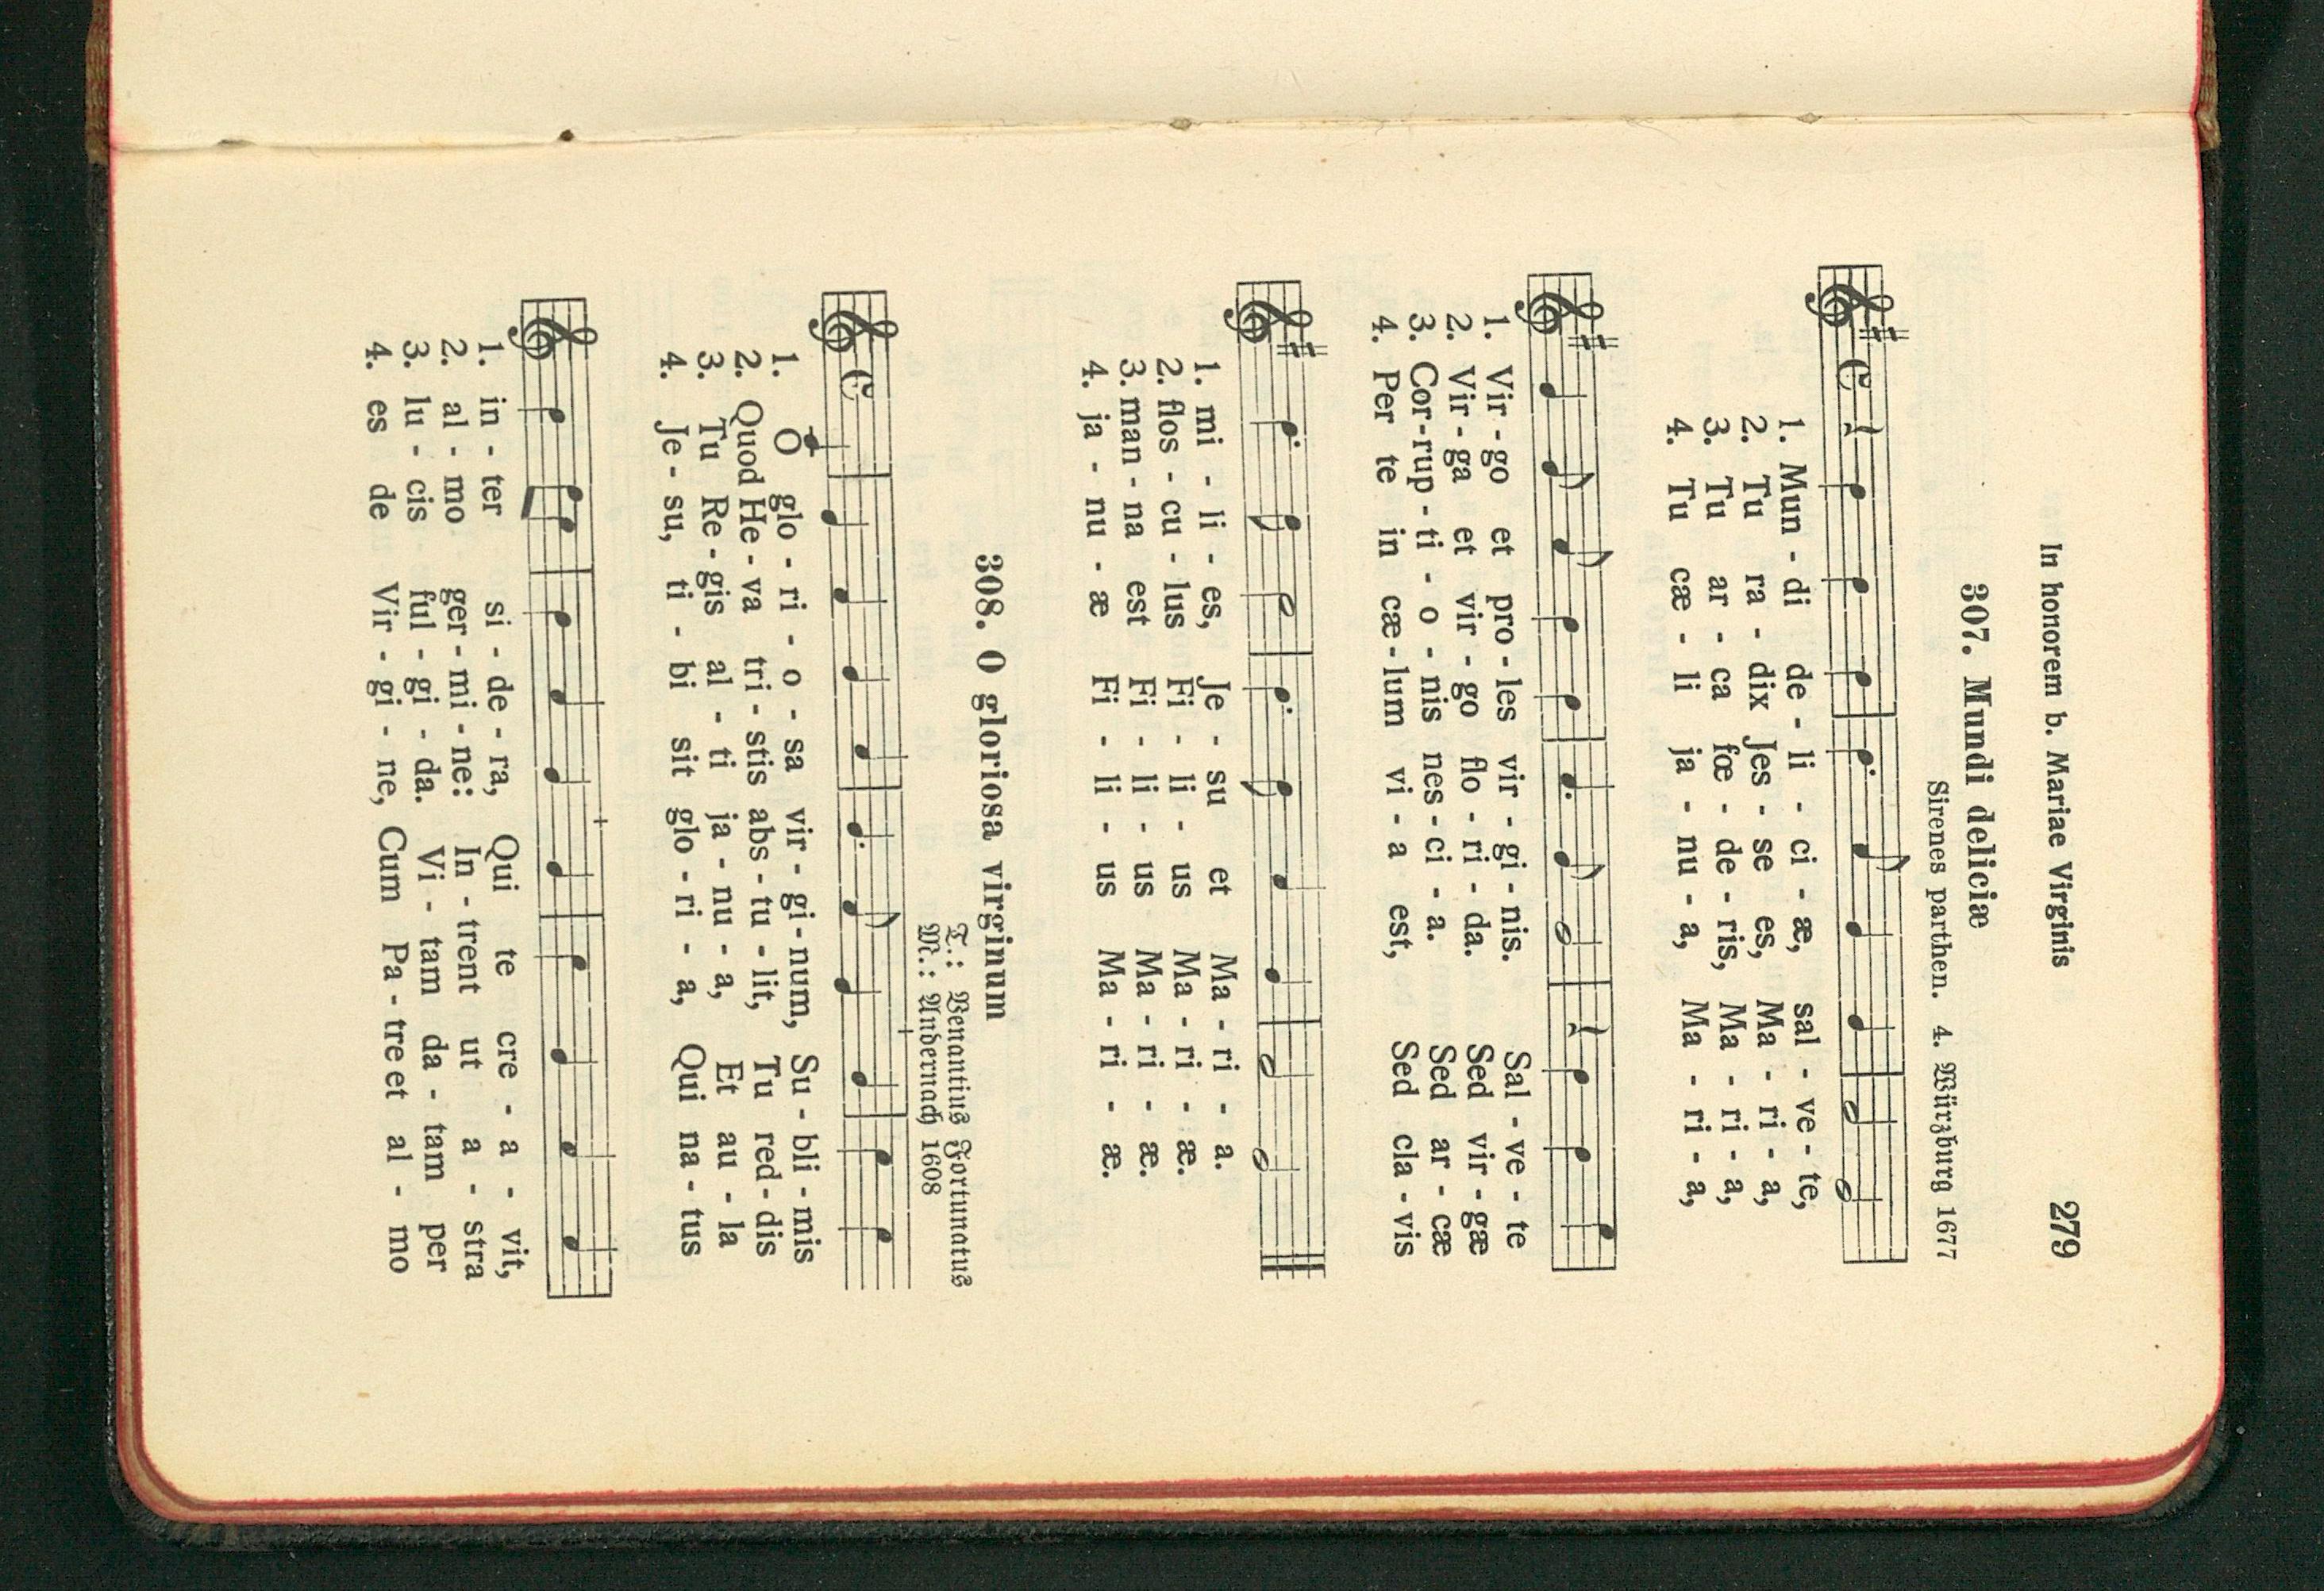 In honorem b. Mariae Virginis 279
307. Mundi deliciæ
Sirenes parthen. 4. Würzburg 1677
1. Mun - di de - li - ci - æ, sal - ve - te,
2. Tu ra - dix Jes - se es, Ma - ri - a,
3. Tu ar - ca fœ - de - ris, Ma - ri - a,
4. Tu cæ - li ja - nu - a, Ma - ri - a,
1. Vir - go et pro - les vir - gi - nis. Sal - ve - te
2. Vir - ga et vir - go flo - ri - da. Sed vir - gæ
3. Cor - rup - ti - o - nis nes - ci - a. Sed ar - cæ
4. Per te in cæ - lum vi - a est, Sed cla - vis
1. mi - li - es, Je - su et Ma - ri - a.
2. flos - cu - lus Fi - li - us Ma - ri - æ.
3. man - na est Fi - li - us Ma - ri - æ.
4. ja - nu - æ Fi - li - us Ma - ri - æ.
308. O gloriosa virginum
T.: Venantius Fortunatus
M.: Andernach 1608
1. O glo - ri - o - sa vir - gi - num, Su - bli - mis
2. Quod He - va tri - stis abs - tu - lit, Tu red - dis
3. Tu Re - gis al - ti ja - nu - a, Et au - la
4. Je - su, ti - bi sit glo - ri - a, Qui na - tus
1. in - ter si - de - ra, Qui te cre - a - vit,
2. al - mo ger - mi - ne: In - trent ut a - stra
3. lu - cis ful - gi - da. Vi - tam da - tam per
4. es de Vir - gi - ne, Cum Pa - tre et al - mo